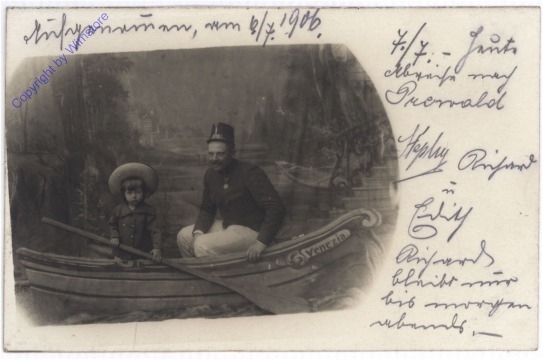 Aufgenommen, am 6/7. 1906.
Copyright by Wimetore
7./7. - Heute
Abreise nach
Prewald
Richard
u
Edith
Richard
bleibt nur
bis morgen
abends. -
Venezia